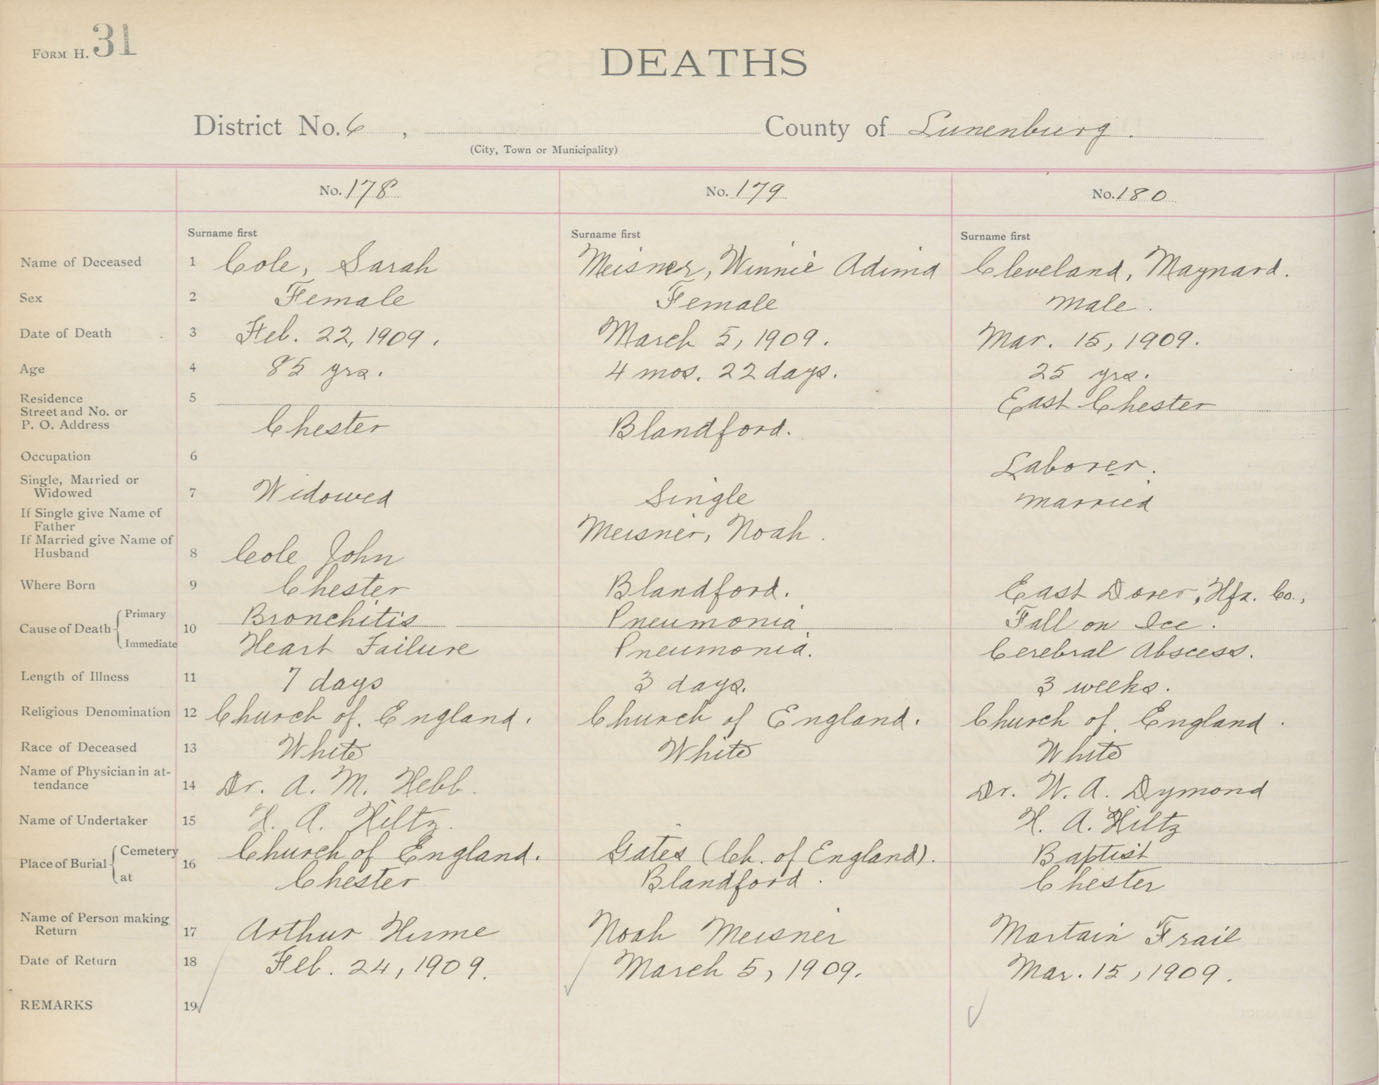 FORM H. 31
DEATHS
District No. 6 , County of Lunenburg.
(City, Town or Municipality)
No. 178 No. 179 No. 180
Surname first Surname first Surname first
Name of Deceased 1 Cole, Sarah Meisner, Winnie Adina Cleveland, Maynard.
Sex 2 Female Female Male.
Date of Death 3 Feb. 22, 1909. March 5, 1909. Mar. 15, 1909.
Age 4 85 yrs. 4 mos. 22 days. 25 yrs.
Residence 5 East Chester
Street and No. or
P. O. Address Chester Blandford.
Occupation 6 Laborer.
Single, Married or
Widowed 7 Widowed Single Married
If Single give Name of
Father Meisner, Noah.
If Married give Name of
Husband 8 Cole John
Where Born 9 Chester Blandford. East Dover, Hfx. Co.,
Cause of Death Primary 10 Bronchitis Pneumonia Fall on Ice.
Immediate Heart Failure Pneumonia. Cerebral Abscess.
Length of Illness 11 7 days 3 days. 3 weeks.
Religious Denomination 12 Church of England. Church of England. Church of England.
Race of Deceased 13 White White White
Name of Physician in at-
tendance 14 Dr. A. M. Hebb. Dr. W. A. Dymond
Name of Undertaker 15 H. A. Hiltz. H. A. Hiltz
Place of Burial Cemetery 16 Church of England. Gates (Ch. of England). Baptist
at Chester Blandford. Chester
Name of Person making
Return 17 Arthur Hume Noah Meisner Martain Frail
Date of Return 18 Feb. 24, 1909. March 5, 1909. Mar. 15, 1909.
REMARKS 19